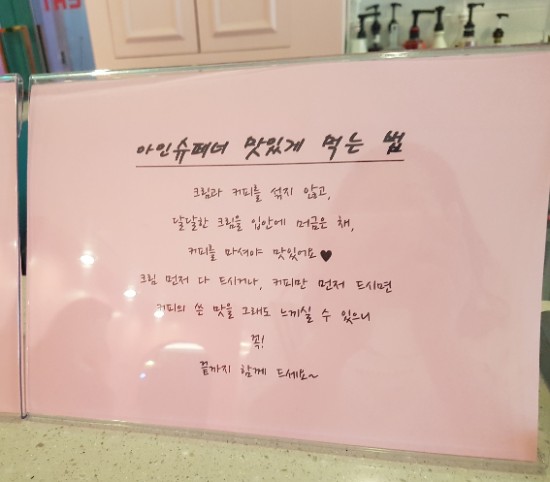 아인슈페너 맛있게 먹는 법
크림과 커피를 섞지 않고,
달달한 크림을 입안에 머금은 채,
커피를 마셔야 맛있어요♥
크림 먼저 다 드시거나, 커피만 먼저 드시면
커피의 쓴 맛을 그래도 느끼실 수 있으니
꼭!
끝까지 함께 드세요~